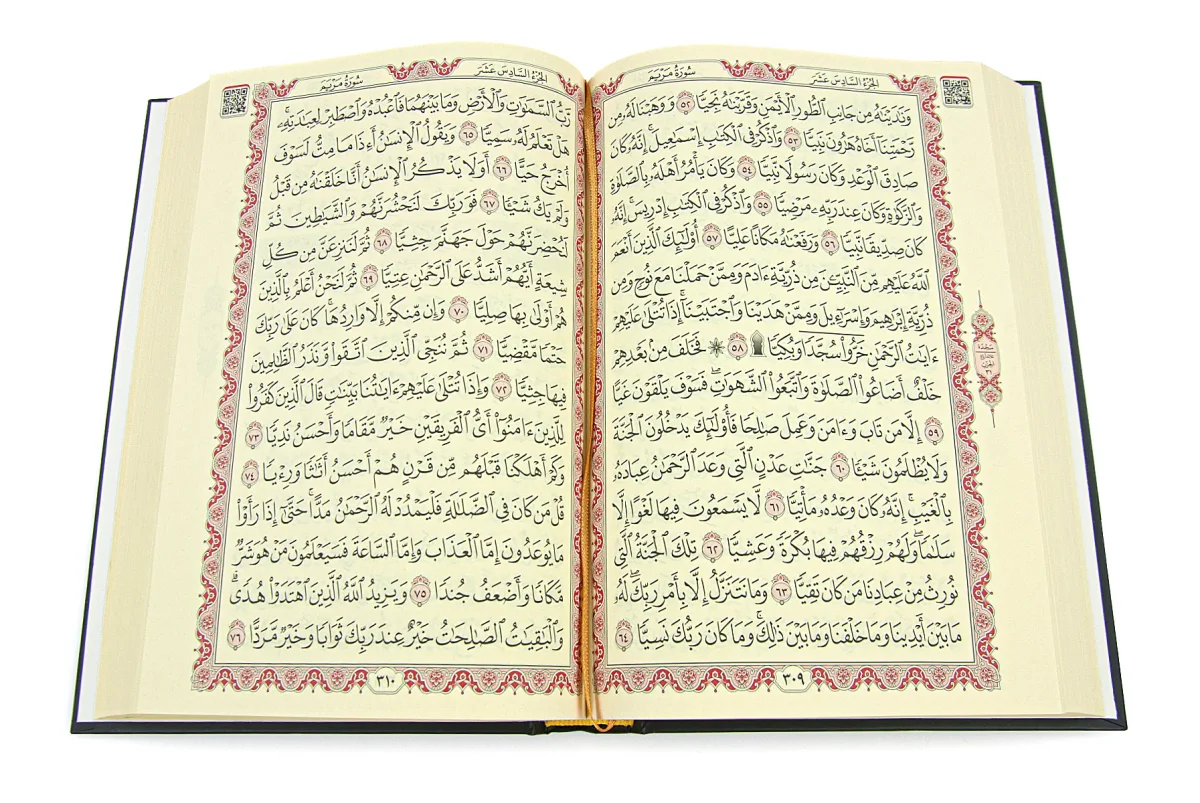 سُورَةُ مَرْيَمَ
الجُزْءُ السَّادِسَ عَشَرَ
وَنَٰدَيْنَٰهُ مِن جَانِبِ ٱلطُّورِ ٱلْأَيْمَنِ وَقَرَّبْنَٰهُ نَجِيًّا ٥٢ وَوَهَبْنَا لَهُۥ مِن
رَّحْمَتِنَآ أَخَاهُ هَٰرُونَ نَبِيًّا ٥٣ وَٱذْكُرْ فِى ٱلْكِتَٰبِ إِسْمَٰعِيلَ ۚ إِنَّهُۥ كَانَ
صَادِقَ ٱلْوَعْدِ وَكَانَ رَسُولًا نَّبِيًّا ٥٤ وَكَانَ يَأْمُرُ أَهْلَهُۥ بِٱلصَّلَوٰةِ
وَٱلزَّكَوٰةِ وَكَانَ عِندَ رَبِّهِۦ مَرْضِيًّا ٥٥ وَٱذْكُرْ فِى ٱلْكِتَٰبِ إِدْرِيسَ ۚ إِنَّهُۥ
كَانَ صِدِّيقًا نَّبِيًّا ٥٦ وَرَفَعْنَٰهُ مَكَانًا عَلِيًّا ٥٧ أُو۟لَٰٓئِكَ ٱلَّذِينَ أَنْعَمَ
ٱللَّهُ عَلَيْهِم مِّنَ ٱلنَّبِيِّـۧنَ مِن ذُرِّيَّةِ ءَادَمَ وَمِمَّنْ حَمَلْنَا مَعَ نُوحٍ وَمِن
ذُرِّيَّةِ إِبْرَٰهِيمَ وَإِسْرَٰٓءِيلَ وَمِمَّنْ هَدَيْنَا وَٱجْتَبَيْنَآ ۚ إِذَا تُتْلَىٰ عَلَيْهِمْ
ءَايَٰتُ ٱلرَّحْمَٰنِ خَرُّوا۟ سُجَّدًا وَبُكِيًّا ۩ ٥٨ ۞ فَخَلَفَ مِنۢ بَعْدِهِمْ
خَلْفٌ أَضَاعُوا۟ ٱلصَّلَوٰةَ وَٱتَّبَعُوا۟ ٱلشَّهَوَٰتِ ۖ فَسَوْفَ يَلْقَوْنَ غَيًّا
٥٩ إِلَّا مَن تَابَ وَءَامَنَ وَعَمِلَ صَٰلِحًا فَأُو۟لَٰٓئِكَ يَدْخُلُونَ ٱلْجَنَّةَ
وَلَا يُظْلَمُونَ شَيْـًٔا ٦٠ جَنَّٰتِ عَدْنٍ ٱلَّتِى وَعَدَ ٱلرَّحْمَٰنُ عِبَادَهُۥ
بِٱلْغَيْبِ ۚ إِنَّهُۥ كَانَ وَعْدُهُۥ مَأْتِيًّا ٦١ لَّا يَسْمَعُونَ فِيهَا لَغْوًا إِلَّا
سَلَٰمًا ۖ وَلَهُمْ رِزْقُهُمْ فِيهَا بُكْرَةً وَعَشِيًّا ٦٢ تِلْكَ ٱلْجَنَّةُ ٱلَّتِى
نُورِثُ مِنْ عِبَادِنَا مَن كَانَ تَقِيًّا ٦٣ وَمَا نَتَنَزَّلُ إِلَّا بِأَمْرِ رَبِّكَ ۖ لَهُۥ
مَا بَيْنَ أَيْدِينَا وَمَا خَلْفَنَا وَمَا بَيْنَ ذَٰلِكَ ۚ وَمَا كَانَ رَبُّكَ نَسِيًّا ٦٤
٣٠٩
سَجْدَة
الجُزْءُ السَّادِسَ عَشَرَ
سُورَةُ مَرْيَمَ
رَّبُّ ٱلسَّمَٰوَٰتِ وَٱلْأَرْضِ وَمَا بَيْنَهُمَا فَٱعْبُدْهُ وَٱصْطَبِرْ لِعِبَٰدَتِهِۦ ۚ
هَلْ تَعْلَمُ لَهُۥ سَمِيًّا ٦٥ وَيَقُولُ ٱلْإِنسَٰنُ أَءِذَا مَا مِتُّ لَسَوْفَ
أُخْرَجُ حَيًّا ٦٦ أَوَلَا يَذْكُرُ ٱلْإِنسَٰنُ أَنَّا خَلَقْنَٰهُ مِن قَبْلُ
وَلَمْ يَكُ شَيْـًٔا ٦٧ فَوَرَبِّكَ لَنَحْشُرَنَّهُمْ وَٱلشَّيَٰطِينَ ثُمَّ
لَنُحْضِرَنَّهُمْ حَوْلَ جَهَنَّمَ جِثِيًّا ٦٨ ثُمَّ لَنَنزِعَنَّ مِن كُلِّ
شِيعَةٍ أَيُّهُمْ أَشَدُّ عَلَى ٱلرَّحْمَٰنِ عِتِيًّا ٦٩ ثُمَّ لَنَحْنُ أَعْلَمُ بِٱلَّذِينَ
هُمْ أَوْلَىٰ بِهَا صِلِيًّا ٧٠ وَإِن مِّنكُمْ إِلَّا وَارِدُهَا ۚ كَانَ عَلَىٰ رَبِّكَ
حَتْمًا مَّقْضِيًّا ٧١ ثُمَّ نُنَجِّى ٱلَّذِينَ ٱتَّقَوا۟ وَّنَذَرُ ٱلظَّٰلِمِينَ
فِيهَا جِثِيًّا ٧٢ وَإِذَا تُتْلَىٰ عَلَيْهِمْ ءَايَٰتُنَا بَيِّنَٰتٍ قَالَ ٱلَّذِينَ كَفَرُوا۟
لِلَّذِينَ ءَامَنُوٓا۟ أَىُّ ٱلْفَرِيقَيْنِ خَيْرٌ مَّقَامًا وَأَحْسَنُ نَدِيًّا ٧٣
وَكَمْ أَهْلَكْنَا قَبْلَهُم مِّن قَرْنٍ هُمْ أَحْسَنُ أَثَٰثًا وَرِءْيًا ٧٤
قُلْ مَن كَانَ فِى ٱلضَّلَٰلَةِ فَلْيَمْدُدْ لَهُ ٱلرَّحْمَٰنُ مَدًّا ۚ حَتَّىٰٓ إِذَا رَأَوْا۟
مَا يُوعَدُونَ إِمَّا ٱلْعَذَابَ وَإِمَّا ٱلسَّاعَةَ فَسَيَعْلَمُونَ مَنْ هُوَ شَرٌّ
مَّكَانًا وَأَضْعَفُ جُندًا ٧٥ وَيَزِيدُ ٱللَّهُ ٱلَّذِينَ ٱهْتَدَوْا۟ هُدًى ۗ
وَٱلْبَٰقِيَٰتُ ٱلصَّٰلِحَٰتُ خَيْرٌ عِندَ رَبِّكَ ثَوَابًا وَخَيْرٌ مَّرَدًّا ٧٦
٣١٠